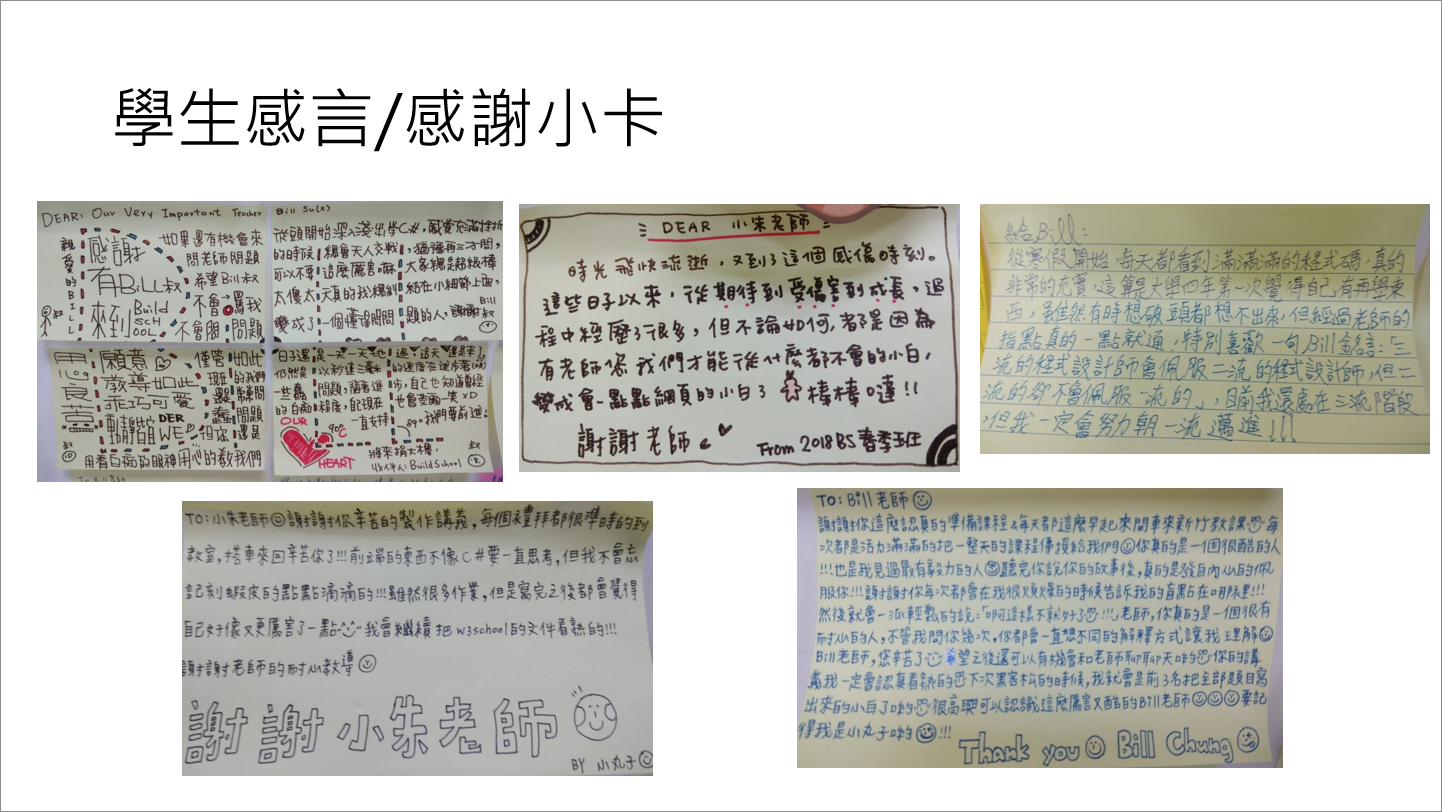 學生感言/感謝小卡
DEAR: Our Very Important Teacher
親愛的BILL叔
感謝
有BiLL叔
來到Build
SCH
OOL
如果還有機會來
問老師問題
希望Bill叔
不會罵我
不會開 問題
Bill Su(x)
從頭開始深入淺出學C#,感覺充滿挫折
的時候
總會天人交戰
可以不要
這麼厲害嘛
太傻太
天真的我
變成了
一個僅
題的人,
Bill
恩
良
善
願意
教導如此
乖巧可愛
動靜皆
DER
WE
僅管
如此
現在
的我們
問題
還是
用看白痴的眼神用心的教我們
日子還是一天一天地過
仍然是
以利達三毫米
的速度在進步著
一些蠢
問題,隨著進
步,自己也知道曾經
的白痴
程度,配現在
也會莞爾一笑XD
OUR
HEART
90°C
一直支持
89。我們要前進!
將來捐大樓,
收件人:BuildSchool
DEAR 小朱老師
時光飛快流逝,又到了這個感傷時刻。
這些日子以來,從期待到受傷害到成長,過
程中經歷了很多,但不論如何,都是因為
有老師您我們才能從什麼都不會的小白,
變成會一點點網頁的小白了 棒棒噠!!
謝謝老師
From 2018BS春季班
給Bill:
從寒假開始,每天都看到滿滿滿的程式碼,真的
非常的充實,這算是大學四年第一次覺得自己有再學東
西,雖然有時想破頭都想不出來,但經過老師的
指點真的一點就通,特別喜歡一句Bill名言:「三
流的程式設計師會佩服二流的程式設計師,但二
流的卻不會佩服一流的」,目前我還處在三流階段
,但我一定會努力朝一流邁進!!!
TO:小朱老師謝謝你辛苦的製作講義,每個禮拜都很準時的到
教室,搭車來回辛苦你了!!!前端的東西不像C#要一直思考,但我不會忘
記刻蝦皮的點點滴滴的!!!雖然很多作業,但是寫完之後都會覺得
自己好像又更厲害了一點 我會繼續把w3school的文件看熟的!!!
謝謝老師的耐心教導
謝謝小朱老師
BY 小丸子
TO:Bill老師
謝謝你這麼認真的準備課程&每天都這麼早起來開車來新竹教課 每
次都是活力滿滿的把一整天的課程傳授給我們 你真的是一個很酷的人
!!!也是我見過最有毅力的人 聽完你說你的故事後,真的是發自內心的佩
服你!!!謝謝你每次都會在我很煩燥的時候告訴我的盲點在哪裡!!!
然後就會一派輕鬆的說:「啊這樣不就好了 !!!」老師,你真的是一個很有
耐心的人,不管我問你幾次,你都會一直想不同的解釋方式讓我理解
Bill老師,您辛苦了 希望之後還可以有機會和老師聊聊天喲 你的講
義我一定會認真看熟的 下次黑客松的時候,我就會是前3名把全部題目寫
出來的小白了喲 很高興可以認識這麼厲害又酷的Bill老師 要記
得我是小丸子喲 !!!
Thank you Bill Chung